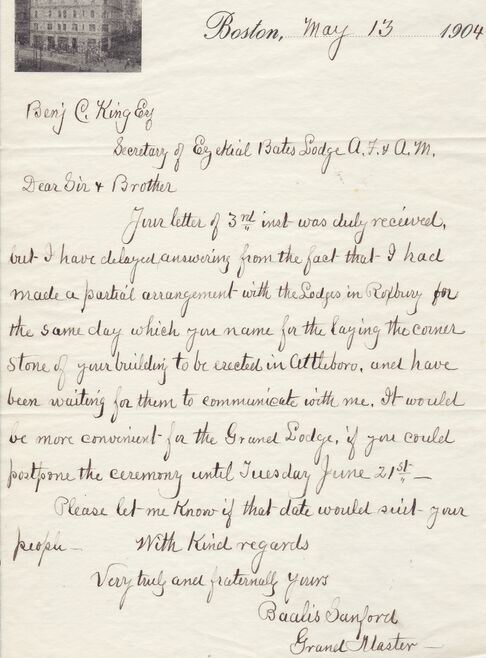 Boston, May 13 1904
Benj C. King Esq
Secretary of Ezekial Bates Lodge A. F. & A. M.
Dear Sir & Brother
Your letter of 3rd inst was duly received,
but I have delayed answering from the fact that I had
made a partial arrangement with the Lodges in Roxbury for
the same day which you name for the laying the corner
stone of your building to be erected in Attleboro, and have
been waiting for them to communicate with me. It would
be more convenient for the Grand Lodge, if you could
postpone the ceremony until Tuesday June 21st —
Please let me know if that date would suit your
people — With Kind regards
Very truly and fraternally yours
Baalis Sanford
Grand Master —